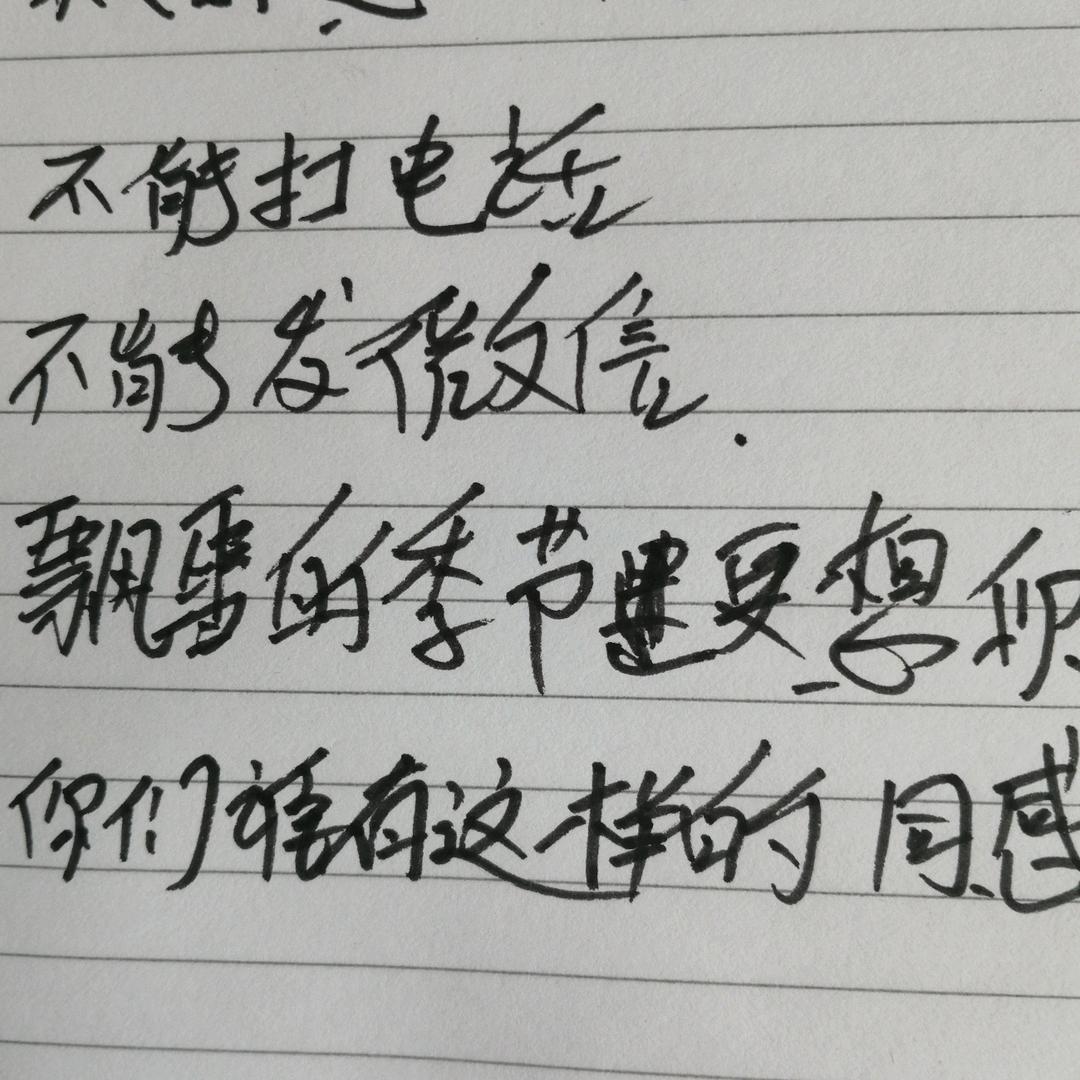 不能打电话
不能发微信.
飘雪的季节更想你
你们谁有这样的同感